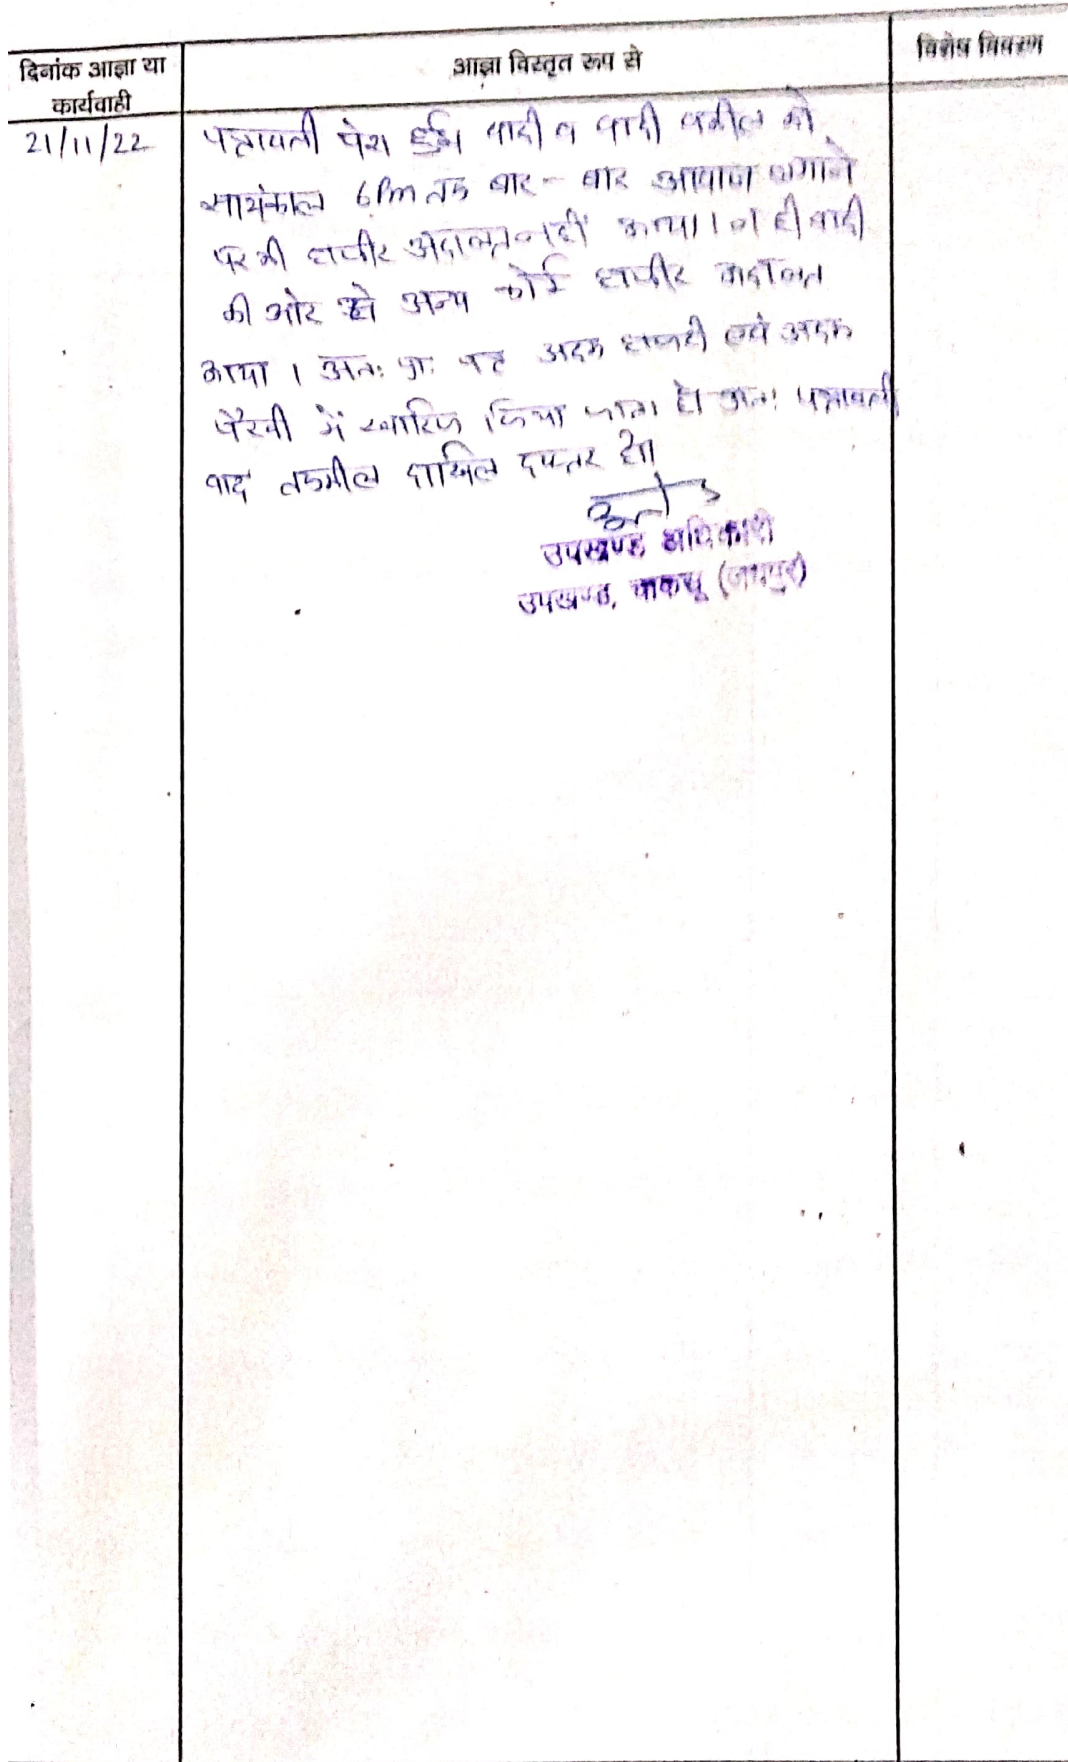 दिनांक आज्ञा या
कार्यवाही
आज्ञा विस्तृत रूप से
विशेष विवरण
21/11/22
पत्रावली पेश हुई। वादी व वादी वकील को
सायंकाल 6 Pm तक बार - बार आवाज लगाने
पर भी हाजीर अदालत नहीं आया। न ही वादी
की ओर से अन्य कोई हाजीर अदालत
आया । अतः प्रा. पत्र अदम हाजरी एवं अदम
पैरवी में खारिज किया जाता है। अतः पत्रावली
बाद तकमील दाखिल दफ्तर हो।
उपखण्ड अधिकारी
उपखण्ड, चाकसू (जयपुर)